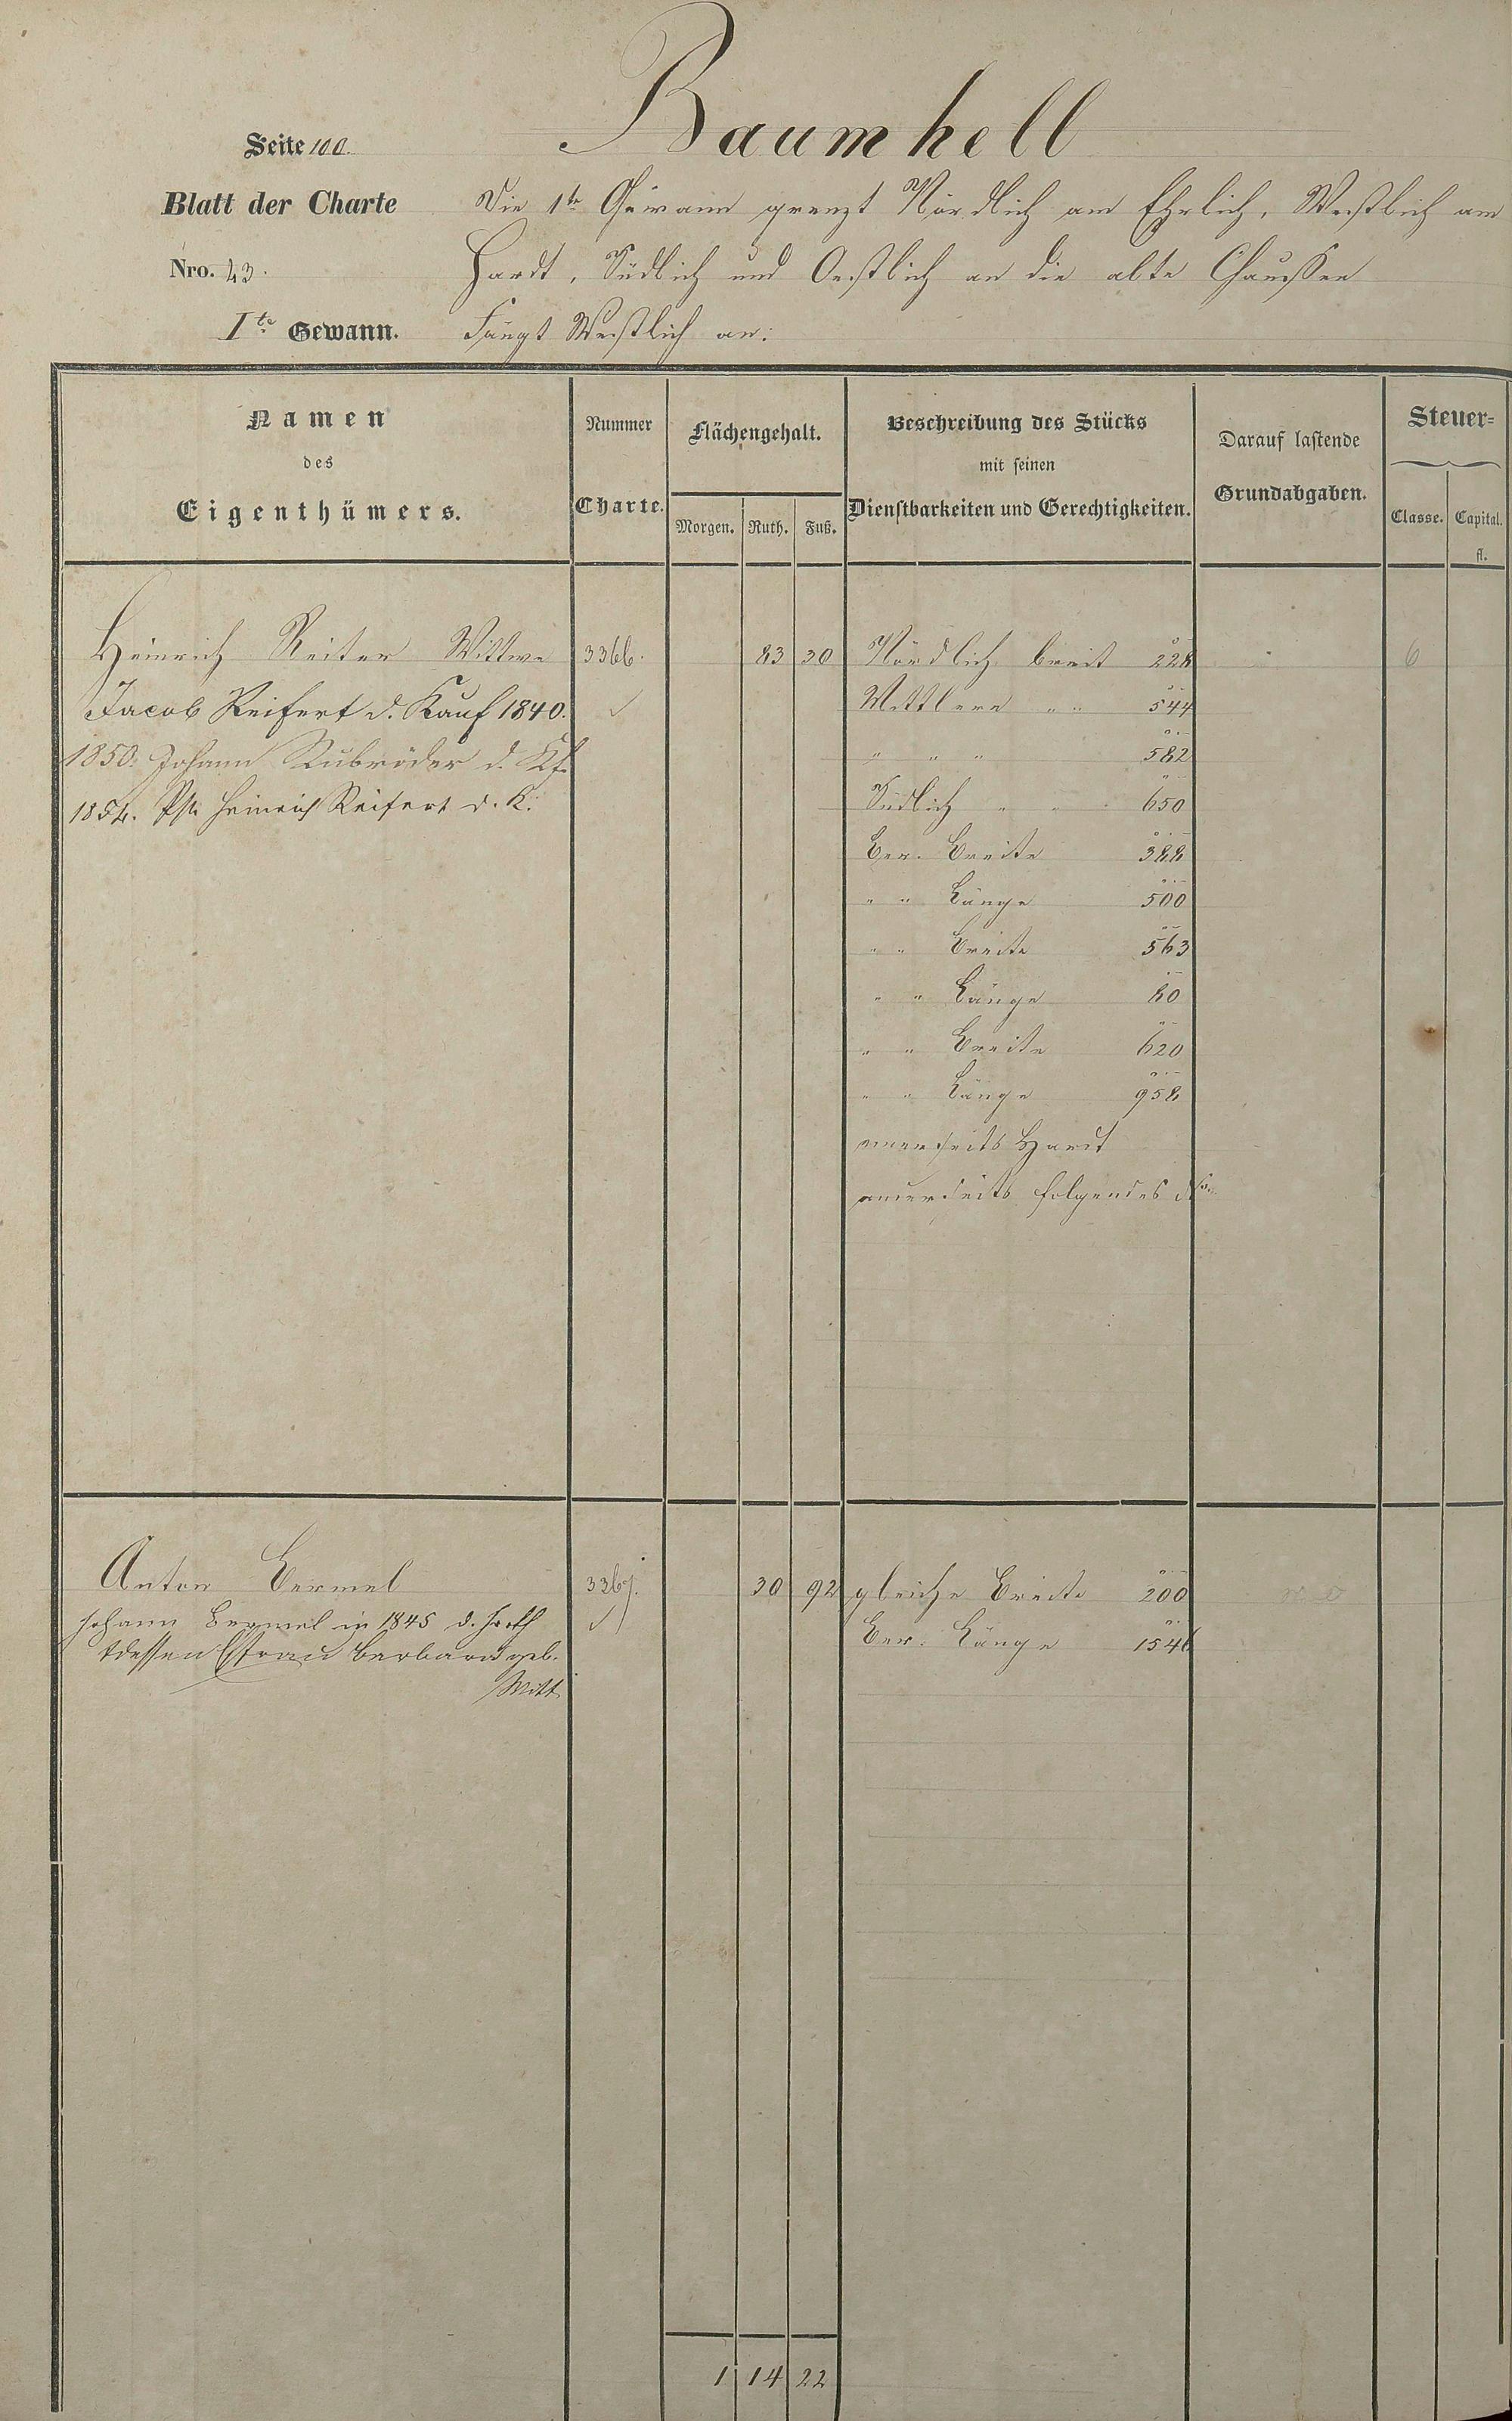 Baumhell
Seite 100.
Blatt der Charte
Nro. 43.
I.te Gewann.
Die 1te Gewann grenzt Nördlich am Ehrlich, Westlich am
Hardt, Südlich und Oestlich an die alte Chaussee
Fängt Westlich an:
Namen
des
Eigenthümers.
Nummer
Charte.
Flächengehalt.
Morgen. Ruth. Fuß.
Beschreibung des Stücks
mit seinen
Dienstbarkeiten und Gerechtigkeiten.
Darauf lastende
Grundabgaben.
Steuer-
Classe. Capital.
fl.
Heinrich Reiter Wittwe 3366. 83 30 Nördlich breit 228 6
Jacob Reifert d. Kauf 1840. Mittlere " " 544
1850. Johann d. Kf. " " " 582
1854. Heinrich Reifert d. K. Südlich " " 650
Ber. Breite 388
" " Länge 500
" " Breite 563
" " Länge 80
" " Breite 620
" " Länge 958
einerseits Hardt
anderseits folgendes
Anton Bermel 3367. 30 92 gleiche Breite 200
Johann Bermel in 1845 d.
dessen Ehfrau Barbara geb.
Witt
Ber. Länge 1546
1 14 22